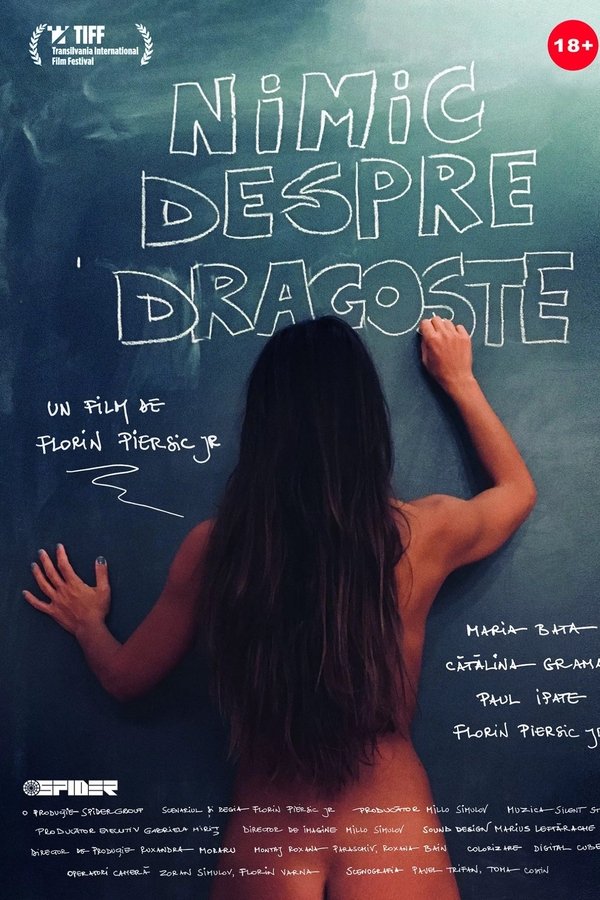 TIFF
Transilvania International
Film Festival
18+
NiMiC
DESPRE
DRAGOSTE
UN FILM DE
FLORIN PIERSIC JR
MARIA BATA
CĂTĂLINA GRAMA
PAUL IPATE
FLORIN PIERSIC JR
SPIDER
O PRODUCȚIE SPIDERGROUP SCENARIUL ȘI REGIA FLORIN PIERSIC JR PRODUCĂTOR MILLO SIMULOV MUZICA SILENT ST
PRODUCĂTOR EXECUTIV GABRIELA HIRIȚ DIRECTOR DE IMAGINE MILLO SIMULOV SOUND DESIGN MARIUS LEFTĂRACHE
DIRECTOR DE PRODUCȚIE RUXANDRA MORARU MONTAJ ROXANA PARASCHIV, ROXANA BAIN COLORIZARE DIGITAL CUBE
OPERATORI CAMERĂ ZORAN SIMULOV, FLORIN VARNA SCENOGRAFIA PAVEL TRIFAN, TOMA COMIN